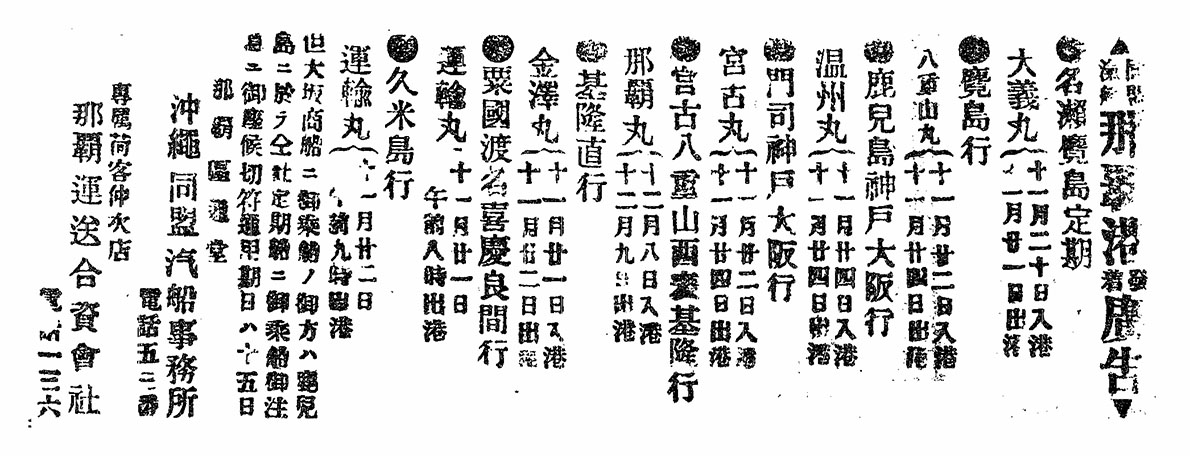 ▲沖縄汽船 那覇港 發着 廣告▼
●名瀬覽島定期
大義丸 十一月二十日入港
十一月廿一日出港
●覽島行
八重山丸 十一月廿二日入港
十一月廿四日出港
●鹿兒島神戸大阪行
温州丸 十一月廿四日入港
十一月廿四日出港
●門司神戸大阪行
宮古丸 十一月廿二日入港
十一月廿四日出港
●宮古八重山西表基隆行
那覇丸 十二月八日入港
十二月九日出港
●基隆直行
金澤丸 十一月廿一日入港
十一月廿二日出港
●粟國渡名喜慶良間行
運輸丸 十一月廿一日
午前八時出港
●久米島行
運輸丸 十一月廿二日
午前九時出港
但大坂商船ニ御乘船ノ御方ハ鹿兒
島ニ於テ仝社定期船ニ御乘船御注
意ニ御座候切符通用期日ハ十五日
那覇區通堂
沖繩同盟汽船事務所
電話五二番
專属荷客仲次店
那覇運送合資會社
電 五一三六